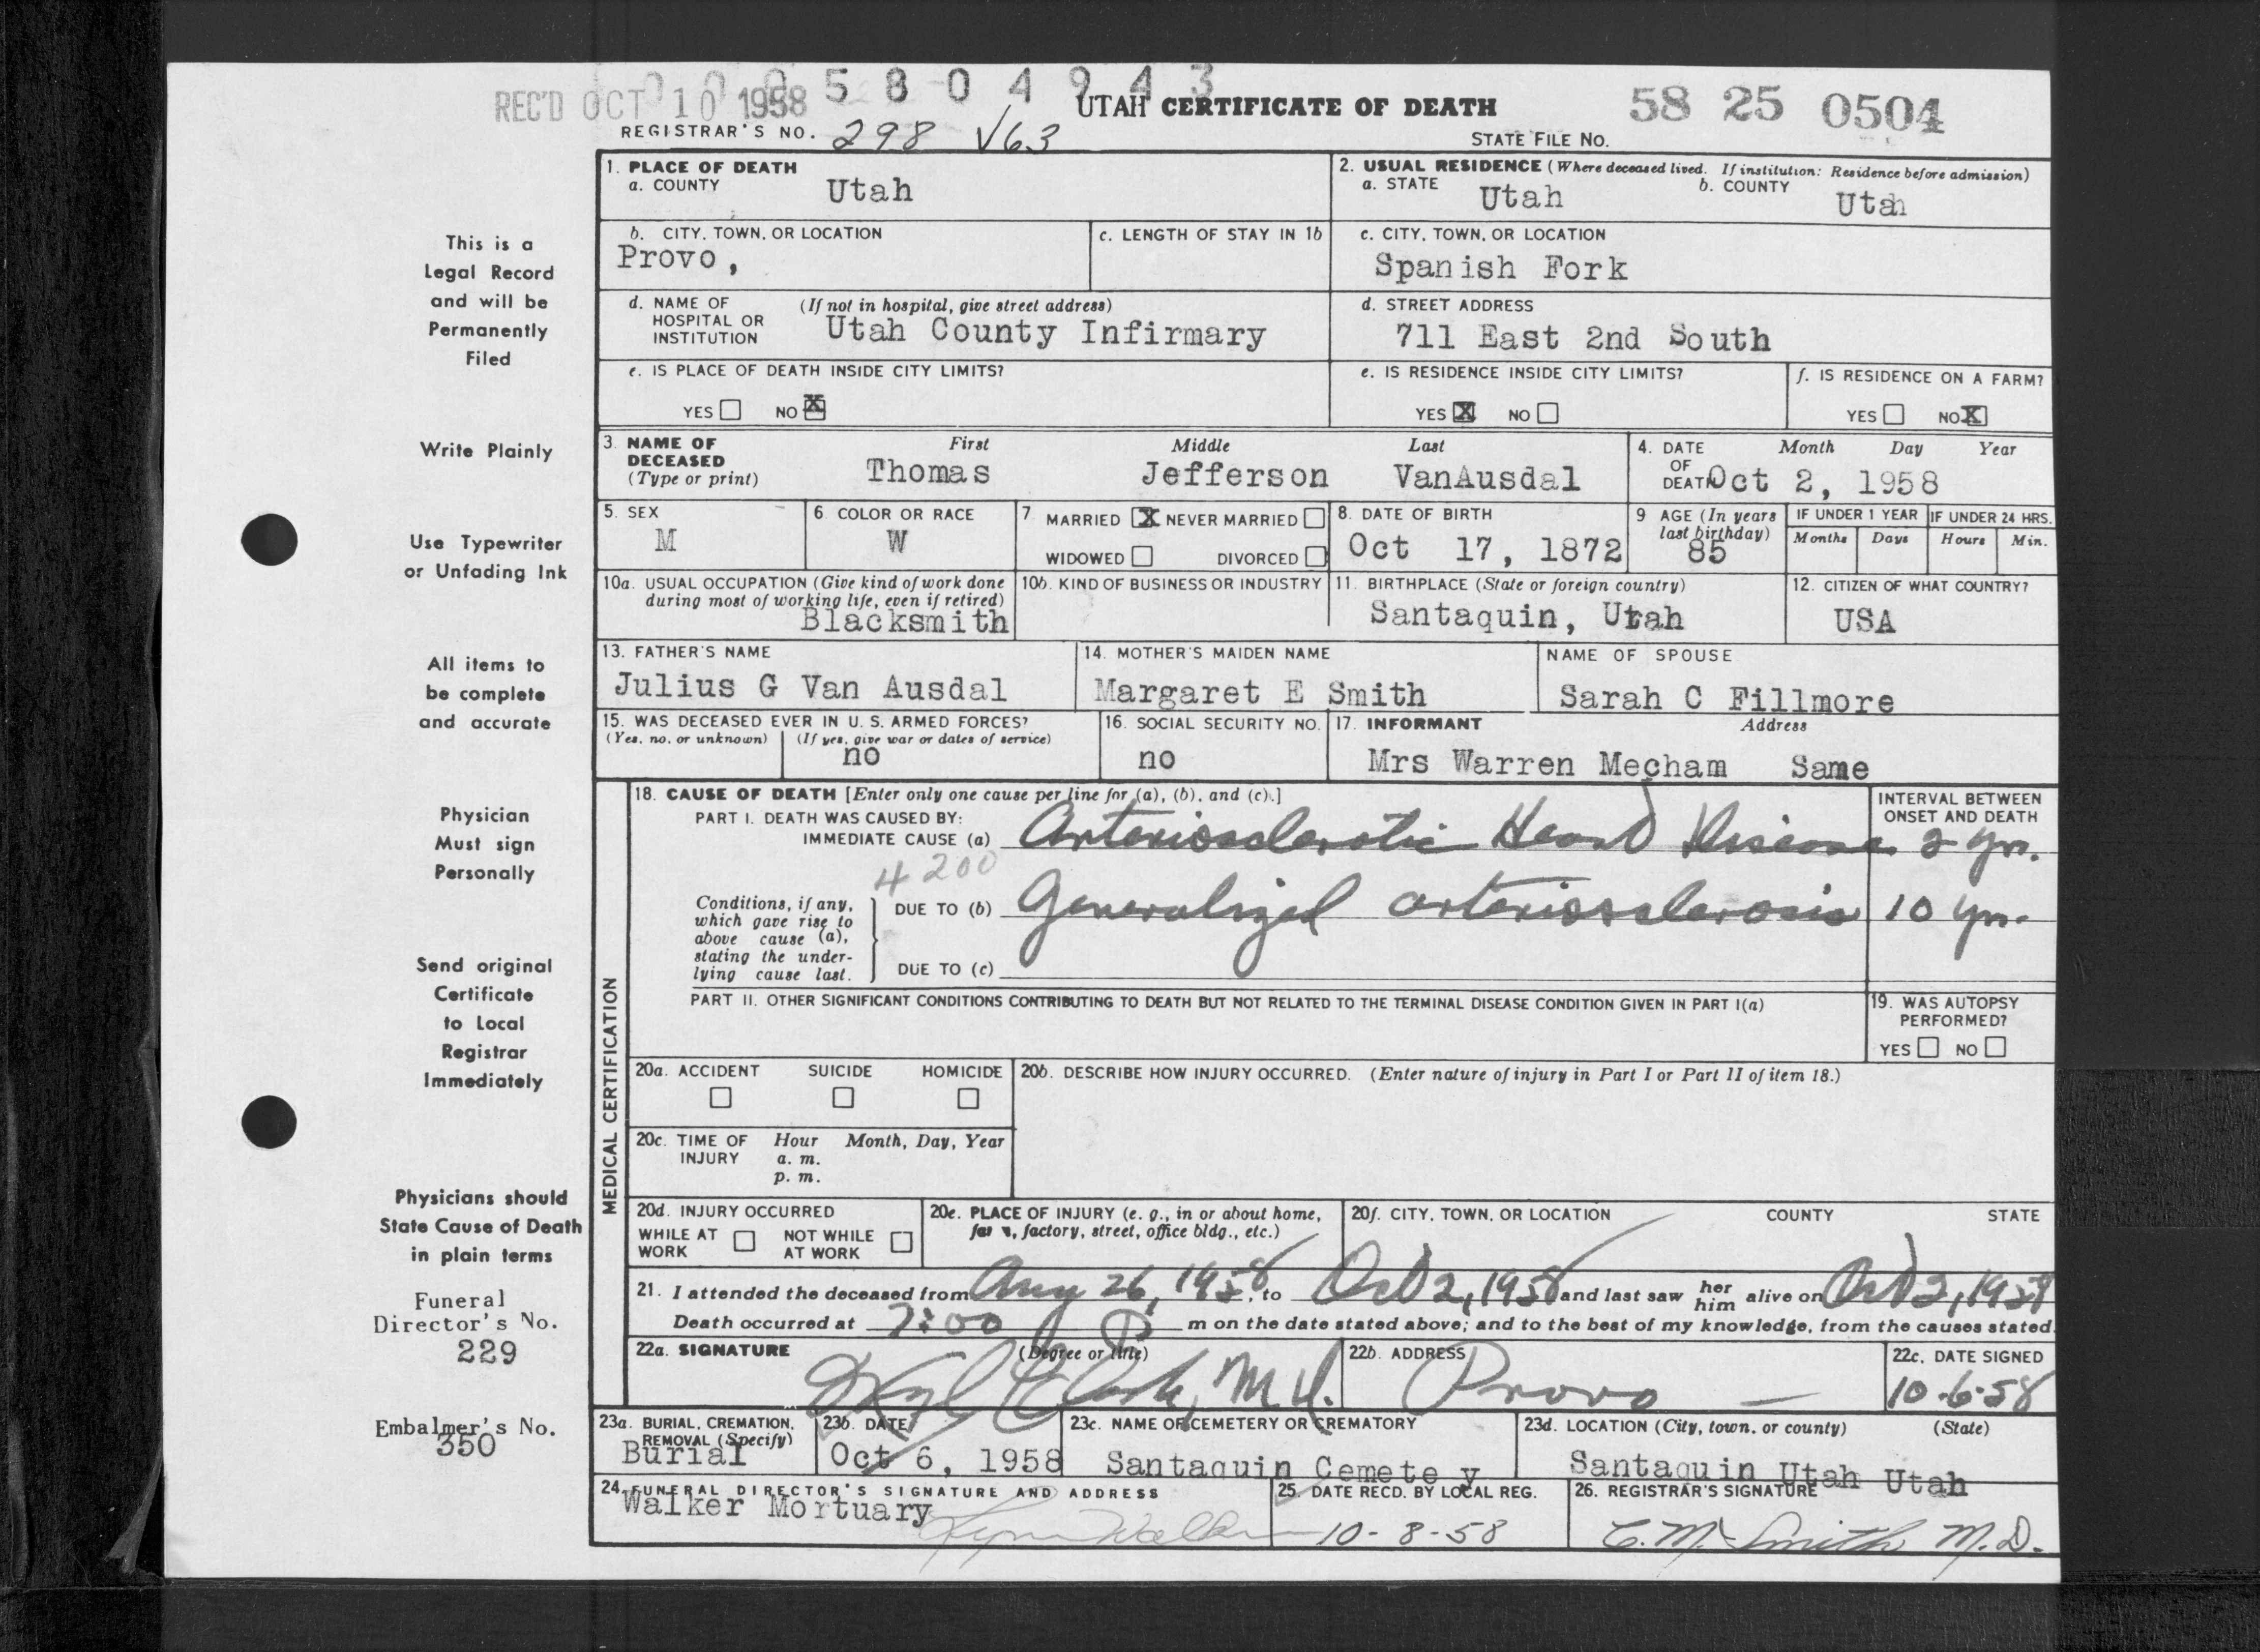 0005804943
REC'D OCT 10 1958
UTAH CERTIFICATE OF DEATH
58 25 0504
REGISTRAR'S NO. 298 V63
STATE FILE NO.
This is a
Legal Record
and will be
Permanently
Filed
Write Plainly
Use Typewriter
or Unfading Ink
All items to
be complete
and accurate
Physician
Must sign
Personally
Send original
Certificate
to Local
Registrar
Immediately
Physicians should
State Cause of Death
in plain terms
Funeral
Director's No.
229
Embalmer's No.
350
1. PLACE OF DEATH
a. COUNTY Utah
2. USUAL RESIDENCE (Where deceased lived. If institution: Residence before admission)
a. STATE Utah b. COUNTY Utah
b. CITY, TOWN, OR LOCATION
Provo,
c. LENGTH OF STAY IN 1b
c. CITY, TOWN, OR LOCATION
Spanish Fork
d. NAME OF (If not in hospital, give street address)
HOSPITAL OR
INSTITUTION Utah County Infirmary
d. STREET ADDRESS
711 East 2nd South
e. IS PLACE OF DEATH INSIDE CITY LIMITS?
YES NO X
e. IS RESIDENCE INSIDE CITY LIMITS?
YES X NO
f. IS RESIDENCE ON A FARM?
YES NO X
3. NAME OF
DECEASED
(Type or print)
First Middle Last
Thomas Jefferson VanAusdal
4. DATE Month Day Year
OF
DEATH Oct 2, 1958
5. SEX
M
6. COLOR OR RACE
W
7 MARRIED X NEVER MARRIED
WIDOWED DIVORCED
8. DATE OF BIRTH
Oct 17, 1872
9 AGE (In years
last birthday)
85
IF UNDER 1 YEAR
Months Days
IF UNDER 24 HRS.
Hours Min.
10a. USUAL OCCUPATION (Give kind of work done
during most of working life, even if retired)
Blacksmith
10b. KIND OF BUSINESS OR INDUSTRY
11. BIRTHPLACE (State or foreign country)
Santaquin, Utah
12. CITIZEN OF WHAT COUNTRY?
USA
13. FATHER'S NAME
Julius G Van Ausdal
14. MOTHER'S MAIDEN NAME
Margaret E Smith
NAME OF SPOUSE
Sarah C Fillmore
15. WAS DECEASED EVER IN U. S. ARMED FORCES?
(Yes, no, or unknown) (If yes, give war or dates of service)
no
16. SOCIAL SECURITY NO.
no
17. INFORMANT Address
Mrs Warren Mecham Same
MEDICAL CERTIFICATION
18. CAUSE OF DEATH [Enter only one cause per line for (a), (b), and (c).]
PART I. DEATH WAS CAUSED BY:
IMMEDIATE CAUSE (a) Arteriosclerotic Heart Disease 2 yrs.
INTERVAL BETWEEN
ONSET AND DEATH
4200
Conditions, if any,
which gave rise to
above cause (a),
stating the under-
lying cause last.
DUE TO (b) Generalized arteriosclerosis 10 yrs.
DUE TO (c)
PART II. OTHER SIGNIFICANT CONDITIONS CONTRIBUTING TO DEATH BUT NOT RELATED TO THE TERMINAL DISEASE CONDITION GIVEN IN PART I(a)
19. WAS AUTOPSY
PERFORMED?
YES NO
20a. ACCIDENT SUICIDE HOMICIDE
20b. DESCRIBE HOW INJURY OCCURRED. (Enter nature of injury in Part I or Part II of item 18.)
20c. TIME OF Hour Month, Day, Year
INJURY a. m.
p. m.
20d. INJURY OCCURRED
WHILE AT NOT WHILE
WORK AT WORK
20e. PLACE OF INJURY (e. g., in or about home,
farm, factory, street, office bldg., etc.)
20f. CITY, TOWN, OR LOCATION COUNTY STATE
21. I attended the deceased from Aug 26, 1958, to Oct 2, 1958 and last saw her him alive on Oct 2, 1958
Death occurred at 7:00 P m on the date stated above; and to the best of my knowledge, from the causes stated.
22a. SIGNATURE (Degree or title)
Clark, M.D.
22b. ADDRESS
Provo
22c. DATE SIGNED
10-6-58
23a. BURIAL, CREMATION,
REMOVAL (Specify)
Burial
23b. DATE
Oct 6, 1958
23c. NAME OF CEMETERY OR CREMATORY
Santaquin Cemete y
23d. LOCATION (City, town, or county) (State)
Santaquin Utah Utah
24. FUNERAL DIRECTOR'S SIGNATURE AND ADDRESS
Walker Mortuary Lynn Walker
25. DATE RECD. BY LOCAL REG.
10-8-58
26. REGISTRAR'S SIGNATURE
C. M. Smith M.D.